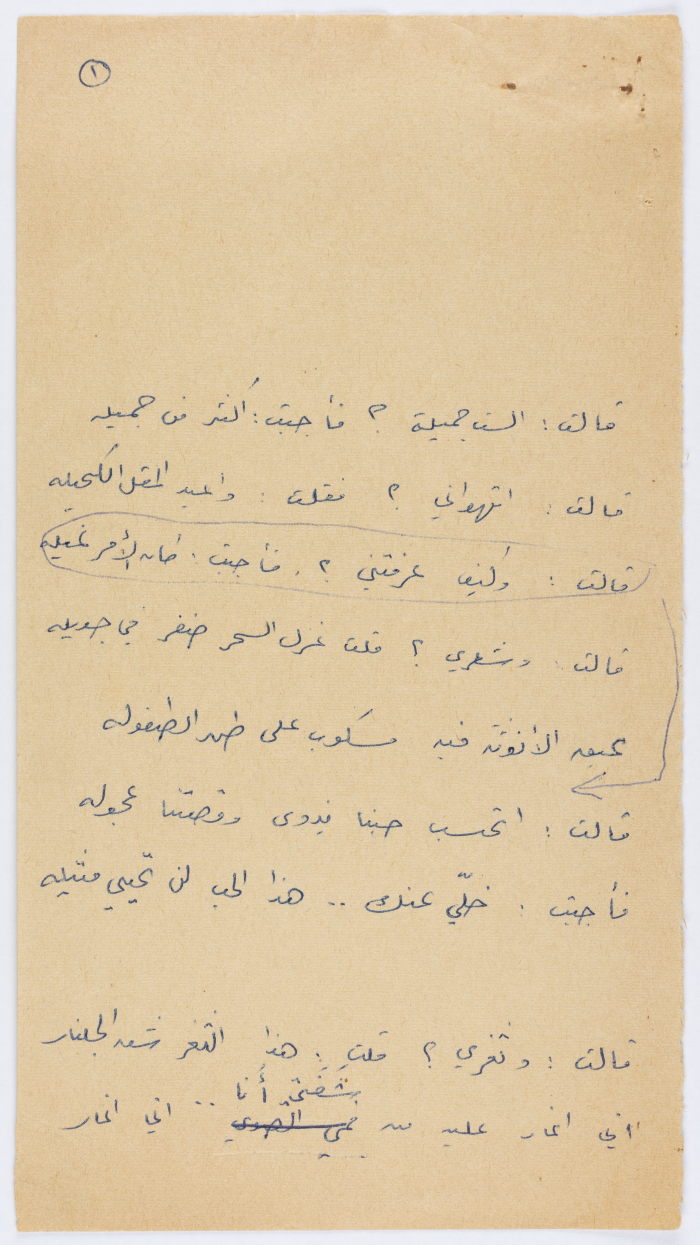 ١
قالت : الست جميلة ؟ فأجبت : أكثر من جميله
قالت : اتهواني ؟ فقلت : واعبد المقل الكحيله
قالت : وكيف عرفتني ؟ . فأجبت : كان الأمر غيله
قالت : وشعري ؟ قلت غزل السحر ضفر في جديله
عبق الأنوثة فيه مسكوب على طهر الطفوله
قالت : اتحسب حبنا يذوى وقصتنا عجوله
فأجبت : خلّي عنك .. هذا الحب لن تحيي مثيله
قالت : وثغري ؟ قلت : هذا الثغر شق الجلنار
شَفَتَيَّ أنا
اني اغار عليه من فمي .. اني اغار